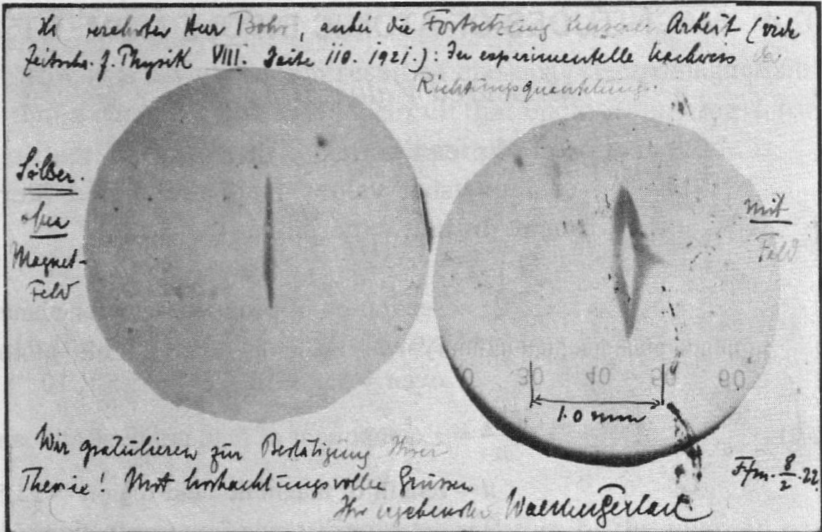 verehrter Herr Bohr, anbei die Fortsetzung unserer Arbeit (vide
Zeitschr. f. Physik VIII. Seite 110. 1921.): Der experimentelle Nachweis der
Richtungsquantelung.
Silber.
ohne
Magnet-
Feld
mit
Feld
30 40 50 60
1.0 mm
Wir gratulieren zur Bestätigung Ihrer
Theorie! Mit hochachtungsvollen Grüssen
Ihr ergebenster Walther Gerlach
F/m. 8/2.22.